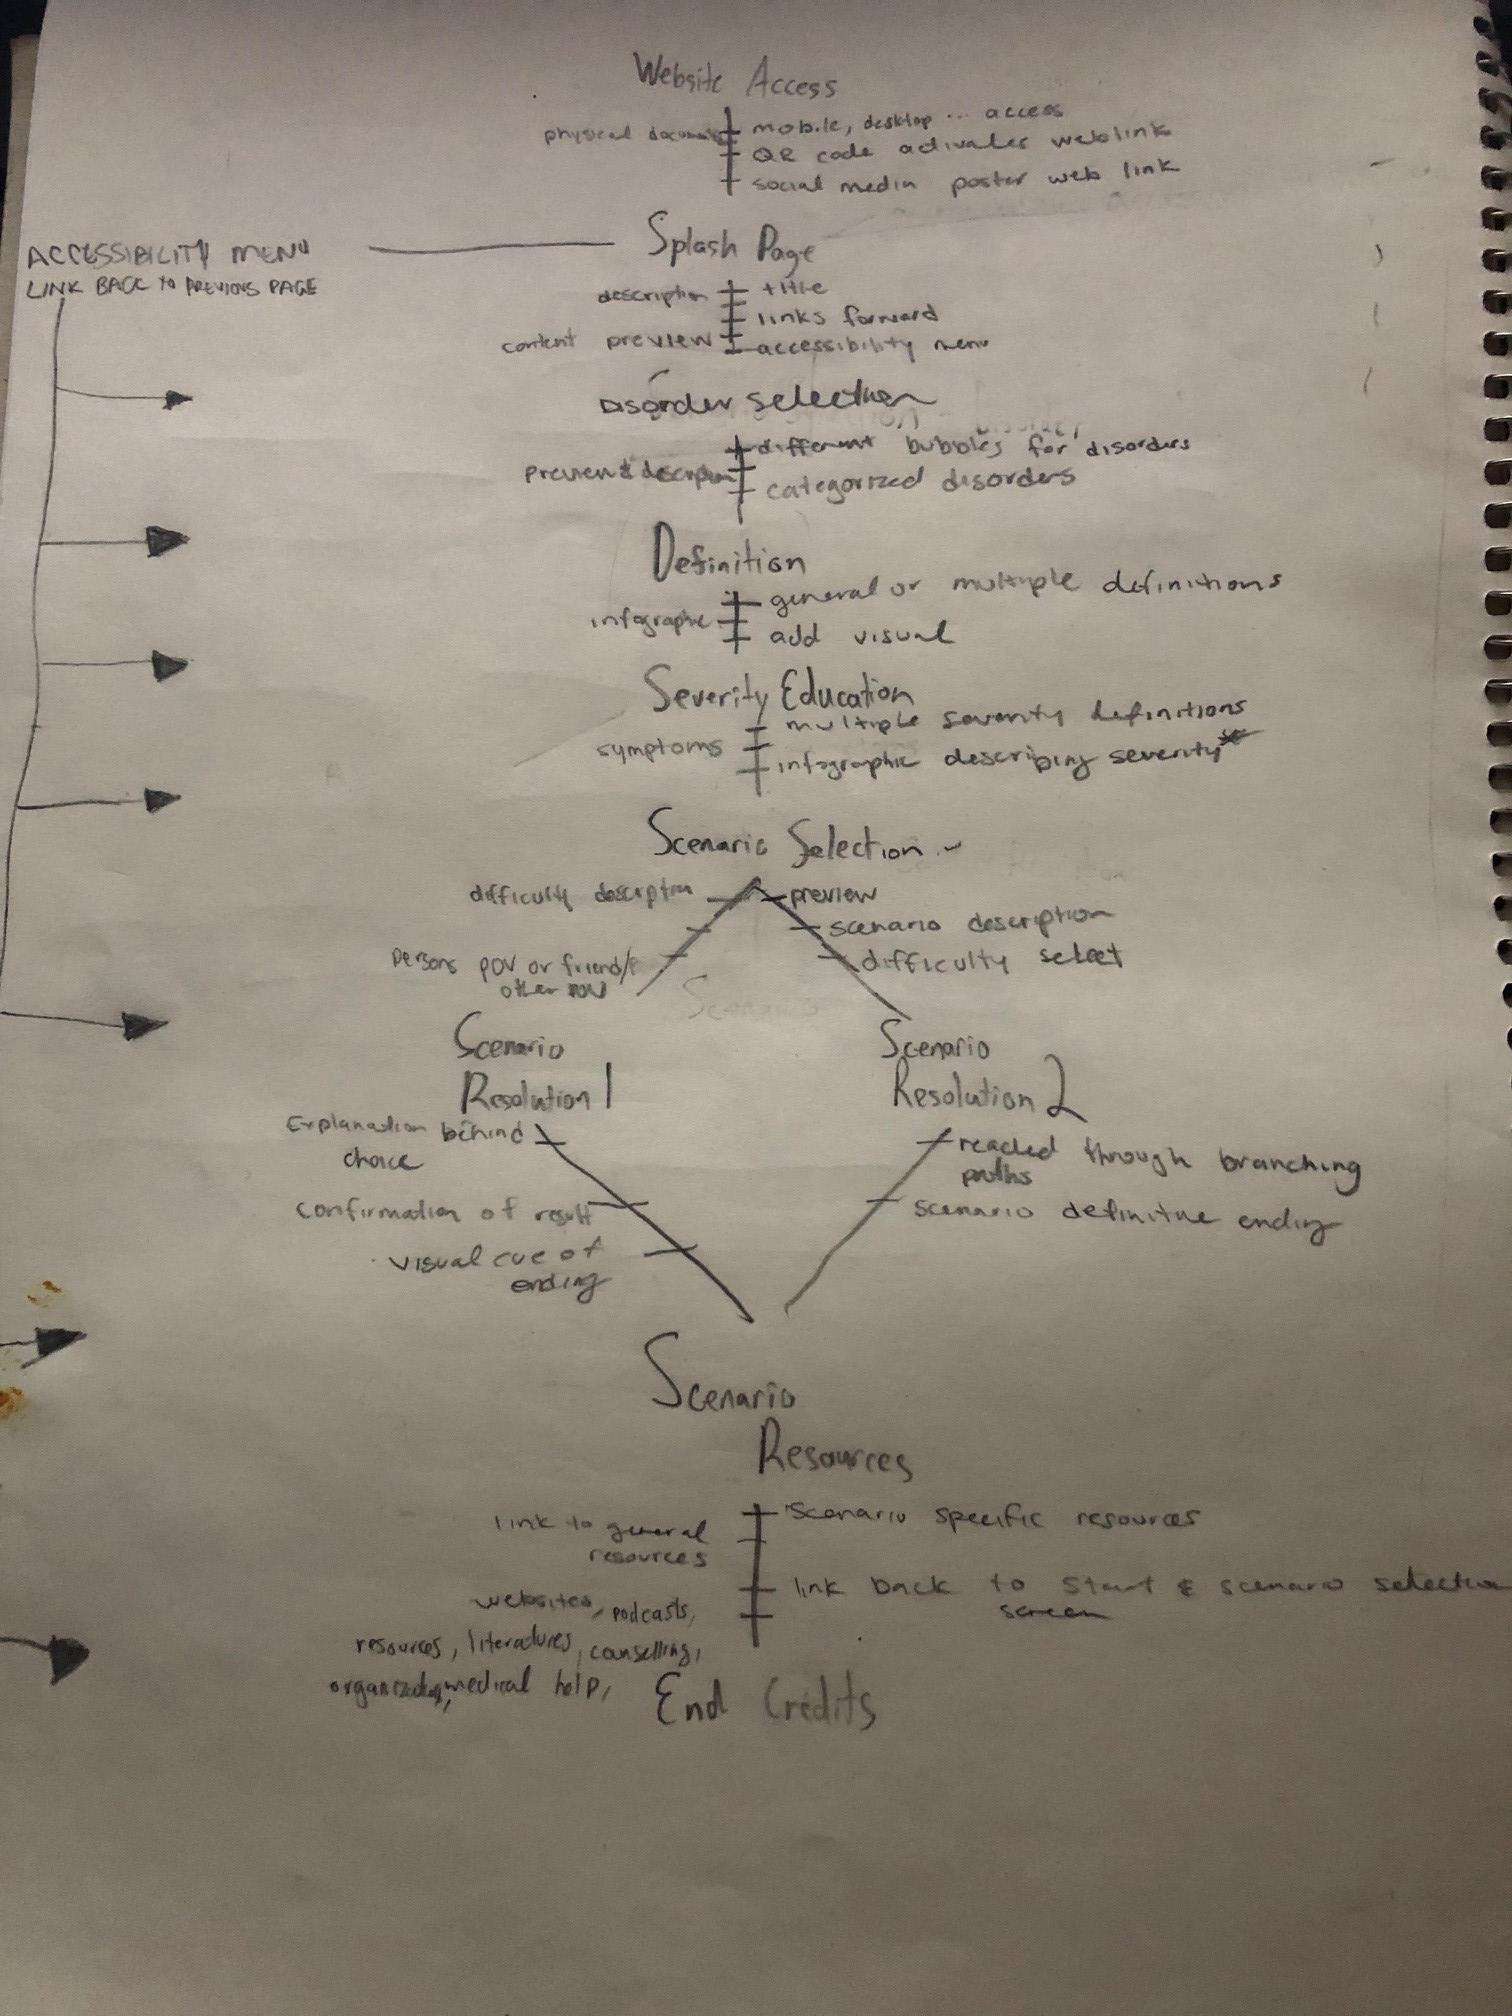 Website Access
physical documents
mobile, desktop ... access
QR code activates weblink
social media poster web link
ACCESSIBILITY MENU
LINK BACK TO PREVIOUS PAGE
Splash Page
description
title
links forward
content preview
accessibility menu
Disorder selection
different bubbles for disorders
preview & description
categorized disorders
Definition
general or multiple definitions
infographic
add visual
Severity Education
multiple severity definitions
symptoms
infographic describing severity*
Scenario Selection
difficulty description
preview
scenario description
persons POV or friend/
other POV
difficulty select
Scenario
Resolution 1
Scenario
Resolution 2
Explanation behind
choice
reached through branching
paths
confirmation of result
scenario definitive ending
visual cue of
ending
Scenario
Resources
scenario specific resources
link to general
resources
link back to start & scenario selection
screen
websites, podcasts,
resources, literatures, counselling,
organizations, medical help,
End Credits